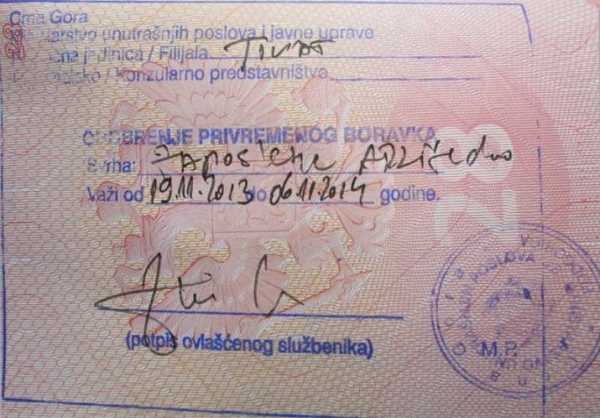 Crna Gora
unutrašnjih poslova i javne uprave
jedinica / Filijala Tivat
konzularno predstavništvo
ODOBRENJE PRIVREMENOG BORAVKA
Svrha: zaposlenje
Važi od 19.11.2013 do 06.11.2014 godine.
(potpis ovlašćenog službenika)
M.P.